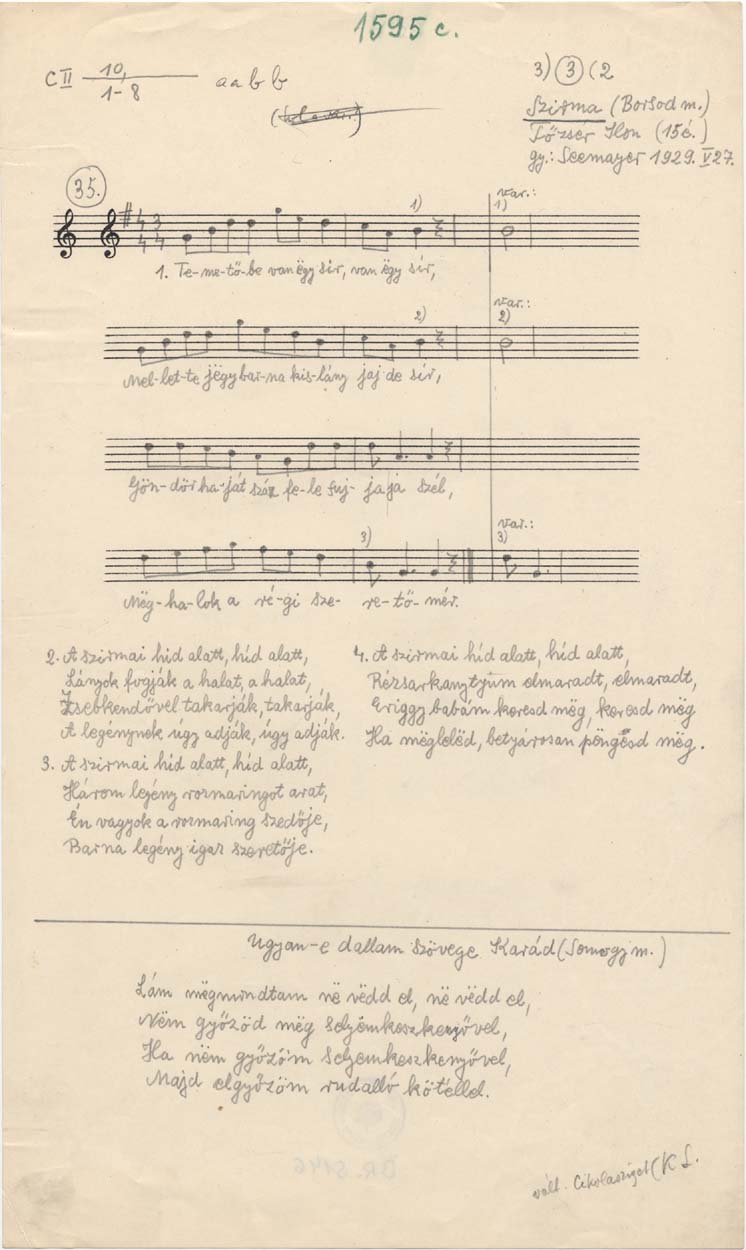 1595 c.
C II 10, 1-8 a a b b
3) 3 (2
Szirma (Borsod m.)
Tőzsér Ilon (15é.)
gy.: Seemayer 1929. V 27.
35.
4 3
4 4
1)
var.:
1)
1. Te-me-tő-be van ëgy sír, van ëgy sír,
2)
var.:
2)
Mel-let-te jëgy bar-na kis-lány jaj de sír,
Gön-dör ha-ját szár fe-le fuj- ja ja szél,
3)
var.:
3)
Mëg-ha-lok a ré-gi sze- re-tő-mér.
2. A szirmai híd alatt, híd alatt,
Lányok fogják a halat, a halat,
Zsebkendővel takarják, takarják,
A legénynek úgy adják, úgy adják.
3. A szirmai híd alatt, híd alatt,
Három legény rozmaringot arat,
Én vagyok a rozmaring szedője,
Barna legény igaz szeretője.
4. A szirmai híd alatt, híd alatt,
Rézsarkantyúm elmaradt, elmaradt,
Eriggy babám keresd mëg, keresd mëg
Ha mëgleled, betyárosan pëngesd mëg.
Ugyan-e dallam szövege Karád (Somogy m.)
Lám mëgmondtam në vëdd el, në vëdd el,
Nëm győzöd mëg selyëmkeszkenyővel,
Ha nëm győzöm selyemkeszkenyővel,
Majd elgyőzöm rudalló kötéllel.
vált. Cikolasziget (K L.